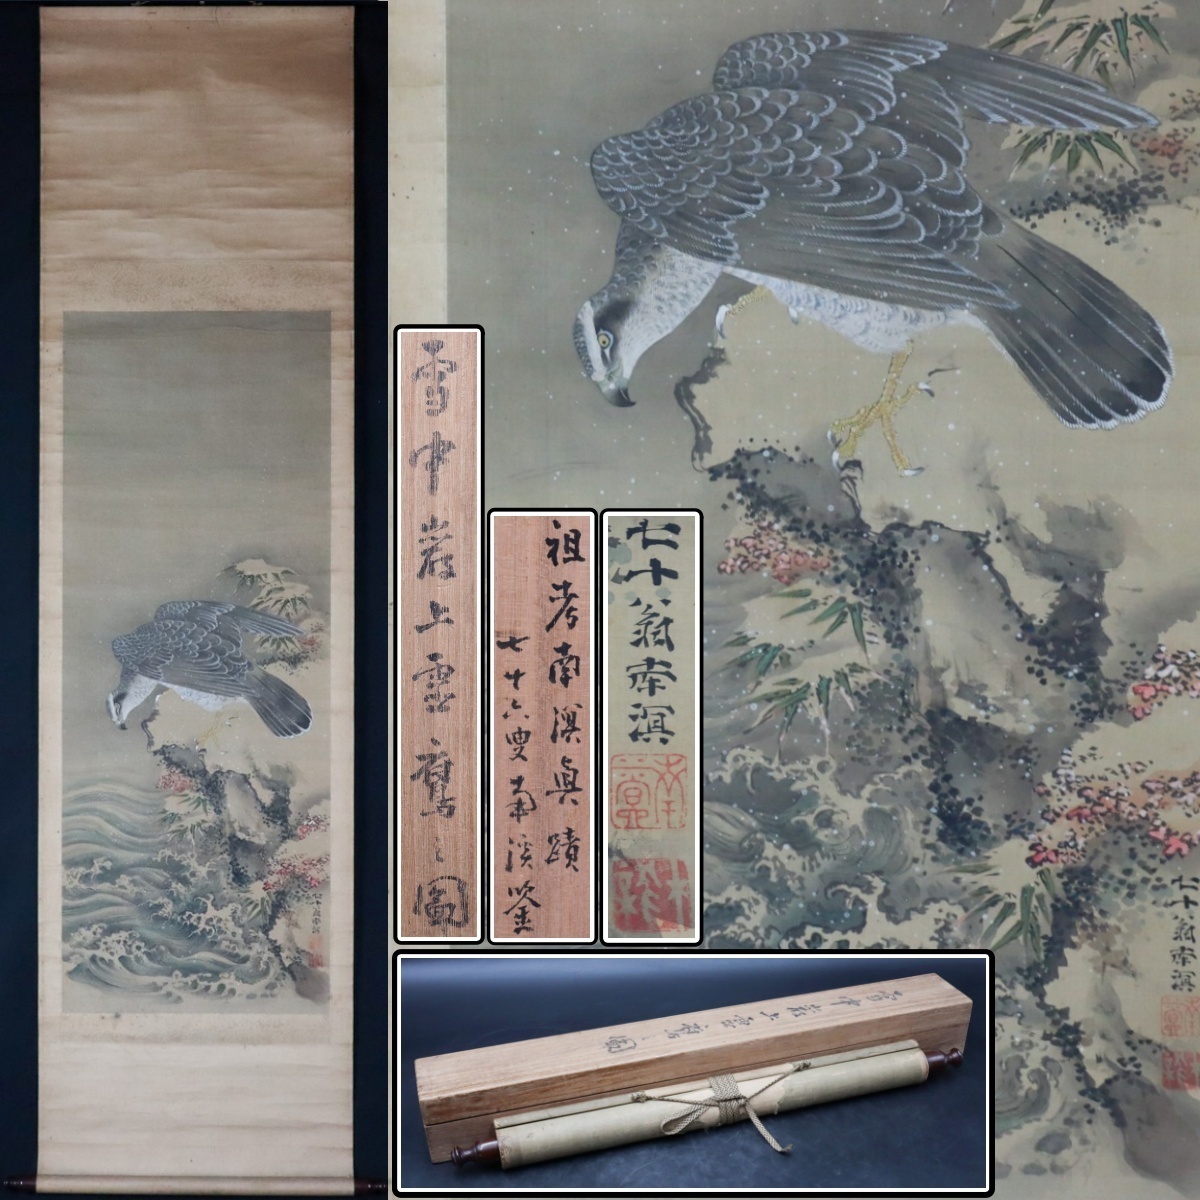 雪中巖上靈鷹之圖
祖考南溟眞蹟
七十六叟南溪鑒
七十翁南溟
七十翁南溟
雪中巖上靈鷹之圖